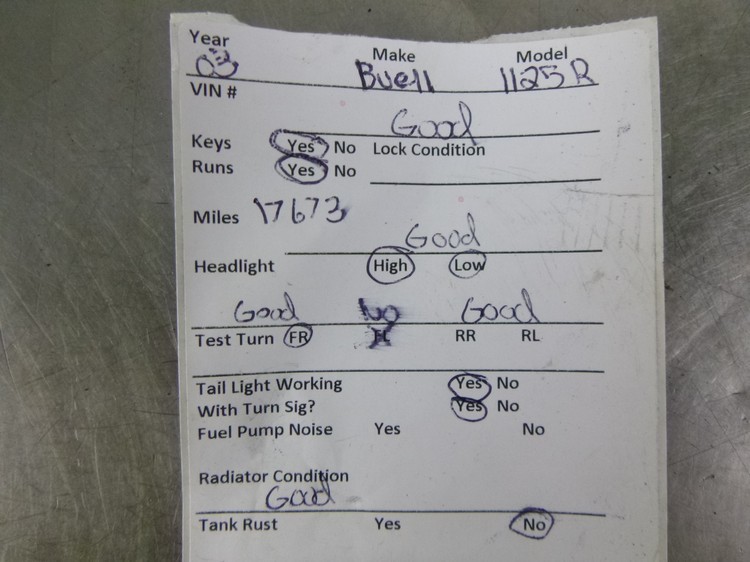 Year Make Model
03 Buell 1125R
VIN #
Good
Keys Yes No Lock Condition
Runs Yes No
Miles 17673
Good
Headlight High Low
Good No Good
Test Turn FR RR RL
Tail Light Working Yes No
With Turn Sig? Yes No
Fuel Pump Noise Yes No
Radiator Condition
Good
Tank Rust Yes No